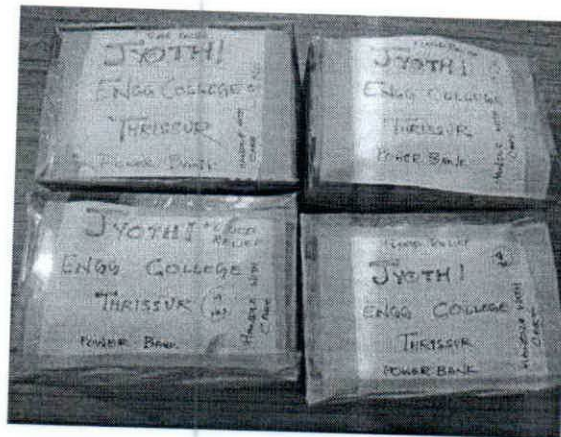 JYOTHI
ENGG COLLEGE
THRISSUR
POWER BANK
HANDLE WITH
CARE
JYOTHI
ENGG COLLEGE
THRISSUR
POWER BANK
HANDLE WITH
CARE
JYOTHI FLOOD
RELIEF
ENGG COLLEGE
THRISSUR
POWER BANK
HANDLE WITH
CARE
FLOOD RELIEF
JYOTHI
ENGG COLLEGE
THRISSUR
POWER BANK
HANDLE WITH
CARE